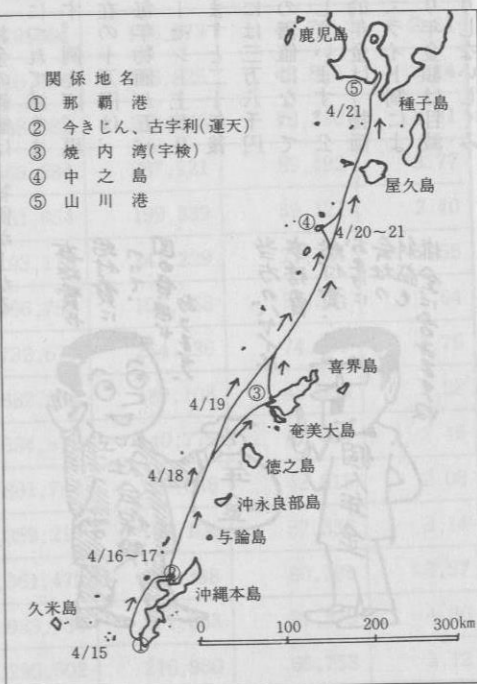 関係地名
① 那覇港
② 今きじん、古宇利(運天)
③ 焼内湾(宇検)
④ 中之島
⑤ 山川港
鹿児島
⑤
4/21
種子島
屋久島
④
4/20～21
喜界島
③
4/19
奄美大島
徳之島
4/18
沖永良部島
与論島
4/16～17
②
沖縄本島
久米島
4/15
①
0 100 200 300km